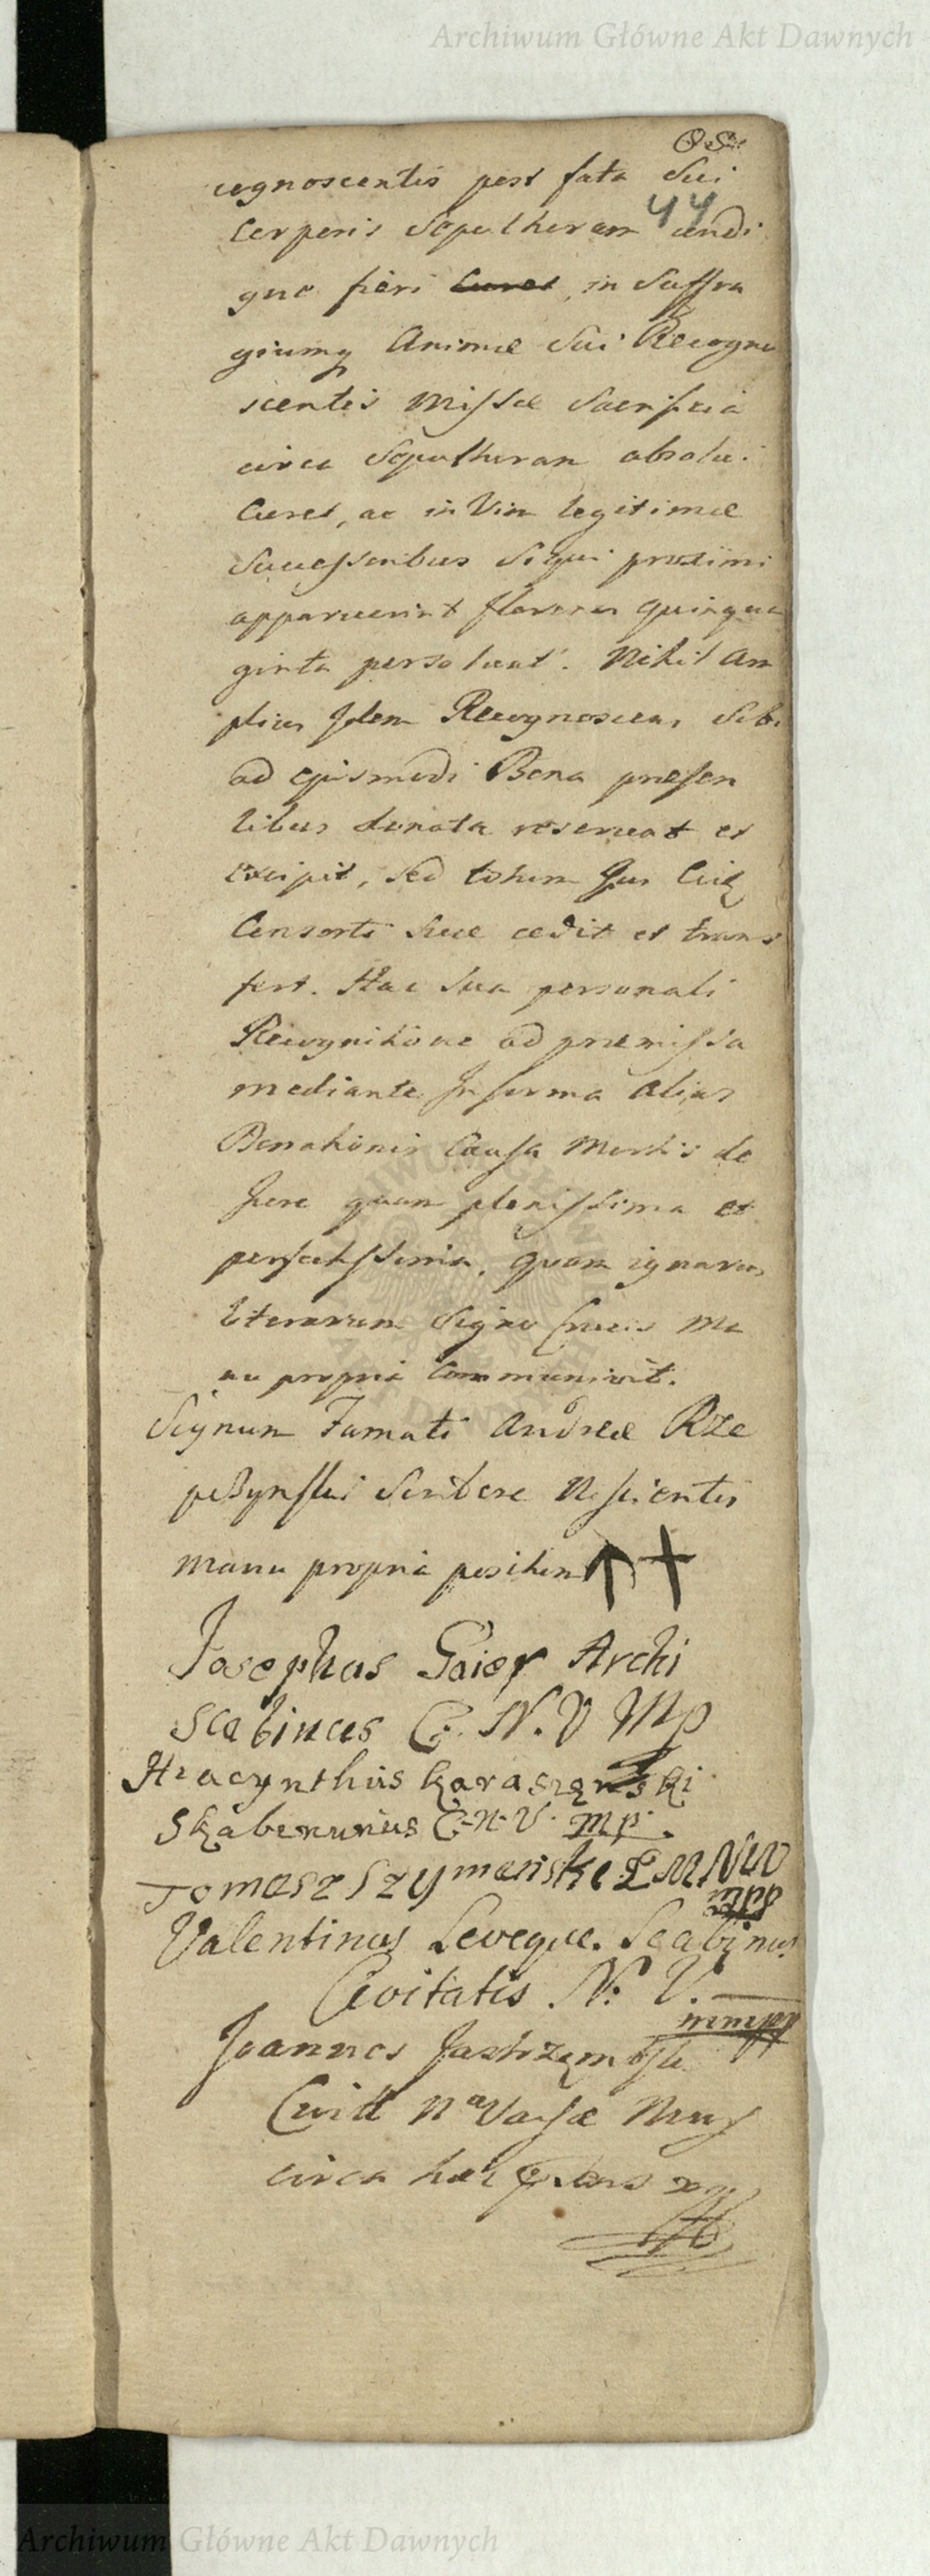 Archiwum Główne Akt Dawnych
cognoscentis post fata Sui
44
Corporis Sepulthuram condi
gne fieri Curet, in Suffra
giumq Animæ Sui Recogno
scentis Missæ Sacrificia
circa Sepulthuram absolvi
Curet, ac in Vim legitimæ
Successoribus Siqui proximi
apparuerint florenos quinqua
ginta persolvat. Nihil Am
plius Idem Recognoscens Sibi
ad ejusmodi Bona præsen
tibus donata reservat et
excipit, sed totum Jus Eidq
Consorti Suæ cedit et trans
fert. Hac Sua personali
Recognitione ad præmissa
mediante In forma alias
Donationis Causa Mortis de
Jure quam plenissima et
perfectissima, quam ignarus
literarum Signo Crucis Ma
nu propria communivit.
Signum Famati Andreæ Rze
Scribere Nescientis
manu propria positum +
Josephus Gaier Archi
Scabinus C. N. V Mp
Hiacynthus Karaszewski
Skabenurius C. N. V. mp.
Tomasz Szymanski
Valentinus Leveque. Scabinus
Civitatis N: V.
mmpp
Joannes Jastrzembski
Civitt Næ Varsæ
circa hæc
Archiwum Główne Akt Dawnych